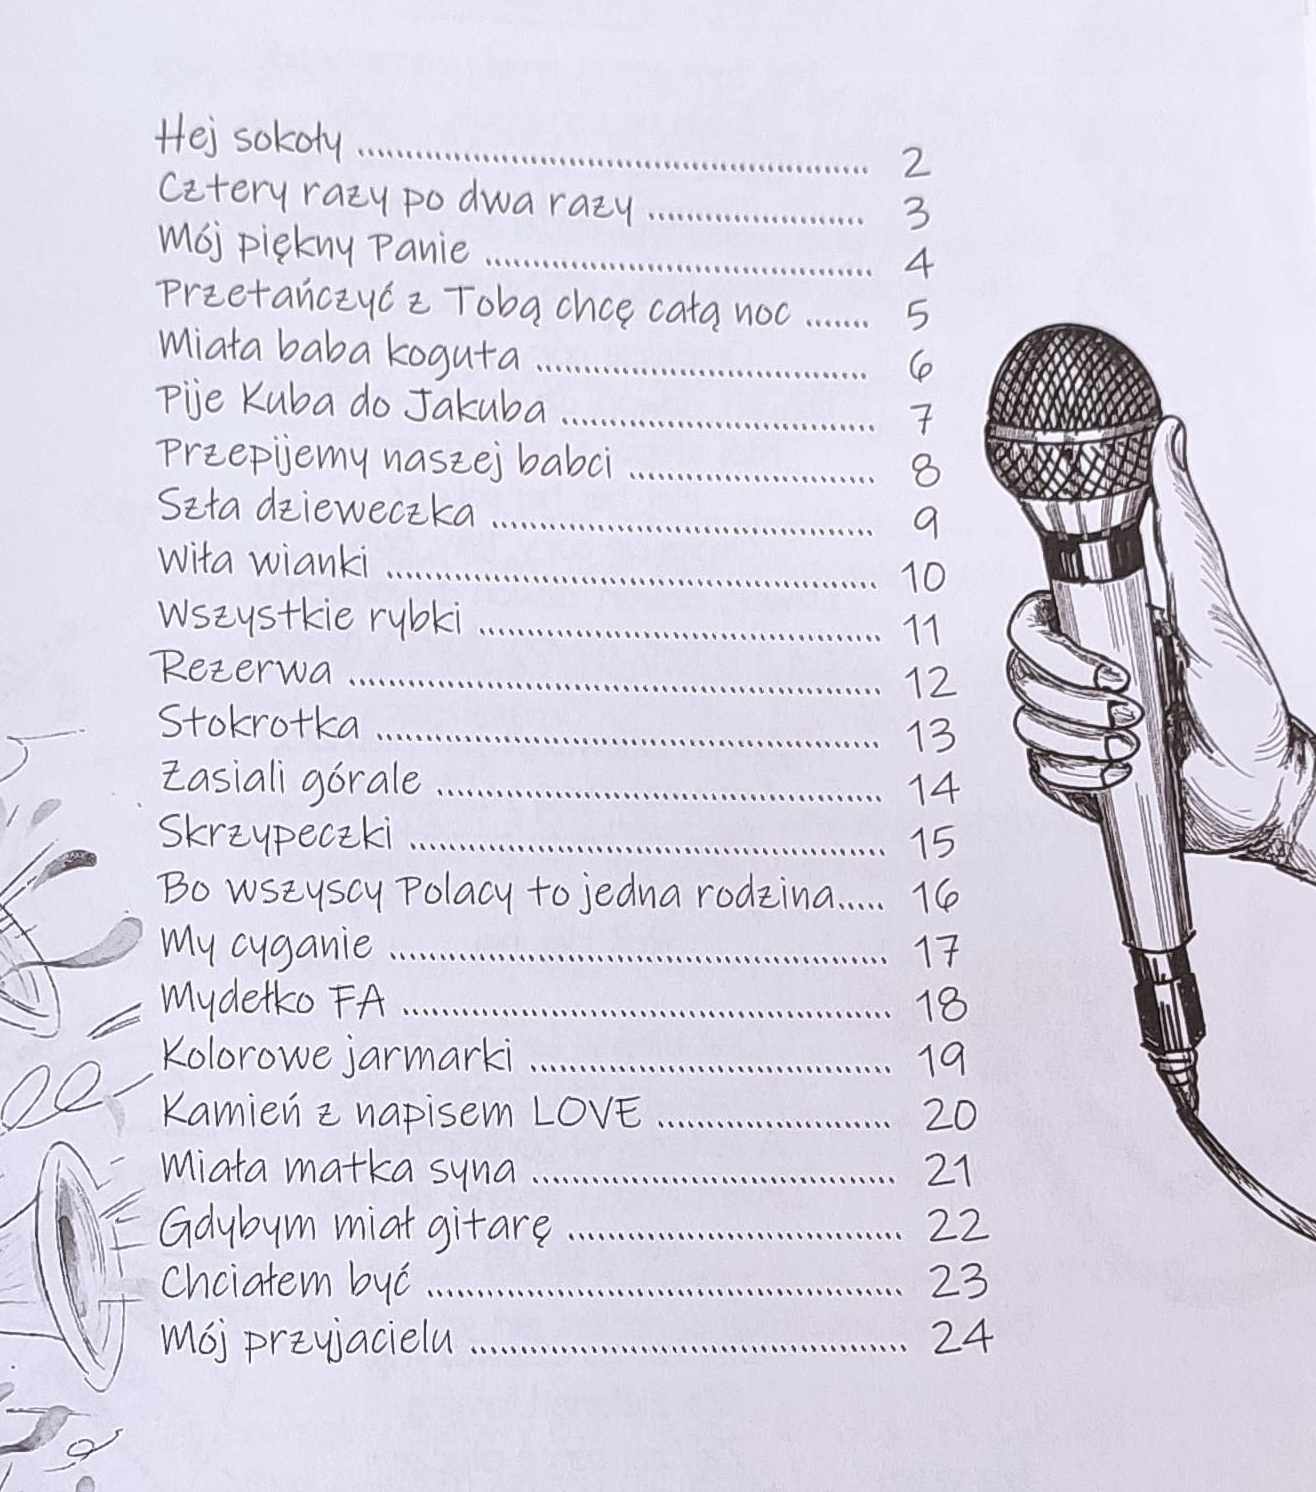 Hej sokoły ........ 2
Cztery razy po dwa razy ........ 3
Mój piękny Panie ........ 4
Przetańczyć z Tobą chcę całą noc ....... 5
Miała baba koguta ........ 6
Pije Kuba do Jakuba ........ 7
Przepijemy naszej babci ........ 8
Szła dzieweczka ........ 9
Wiła wianki ........ 10
Wszystkie rybki ........ 11
Rezerwa ........ 12
Stokrotka ........ 13
Zasiali górale ........ 14
Skrzypeczki ........ 15
Bo wszyscy Polacy to jedna rodzina..... 16
My cyganie ........ 17
Mydełko FA ........ 18
Kolorowe jarmarki ........ 19
Kamień z napisem LOVE ........ 20
Miała matka syna ........ 21
Gdybym miał gitarę ........ 22
Chciałem być ........ 23
Mój przyjacielu ........ 24